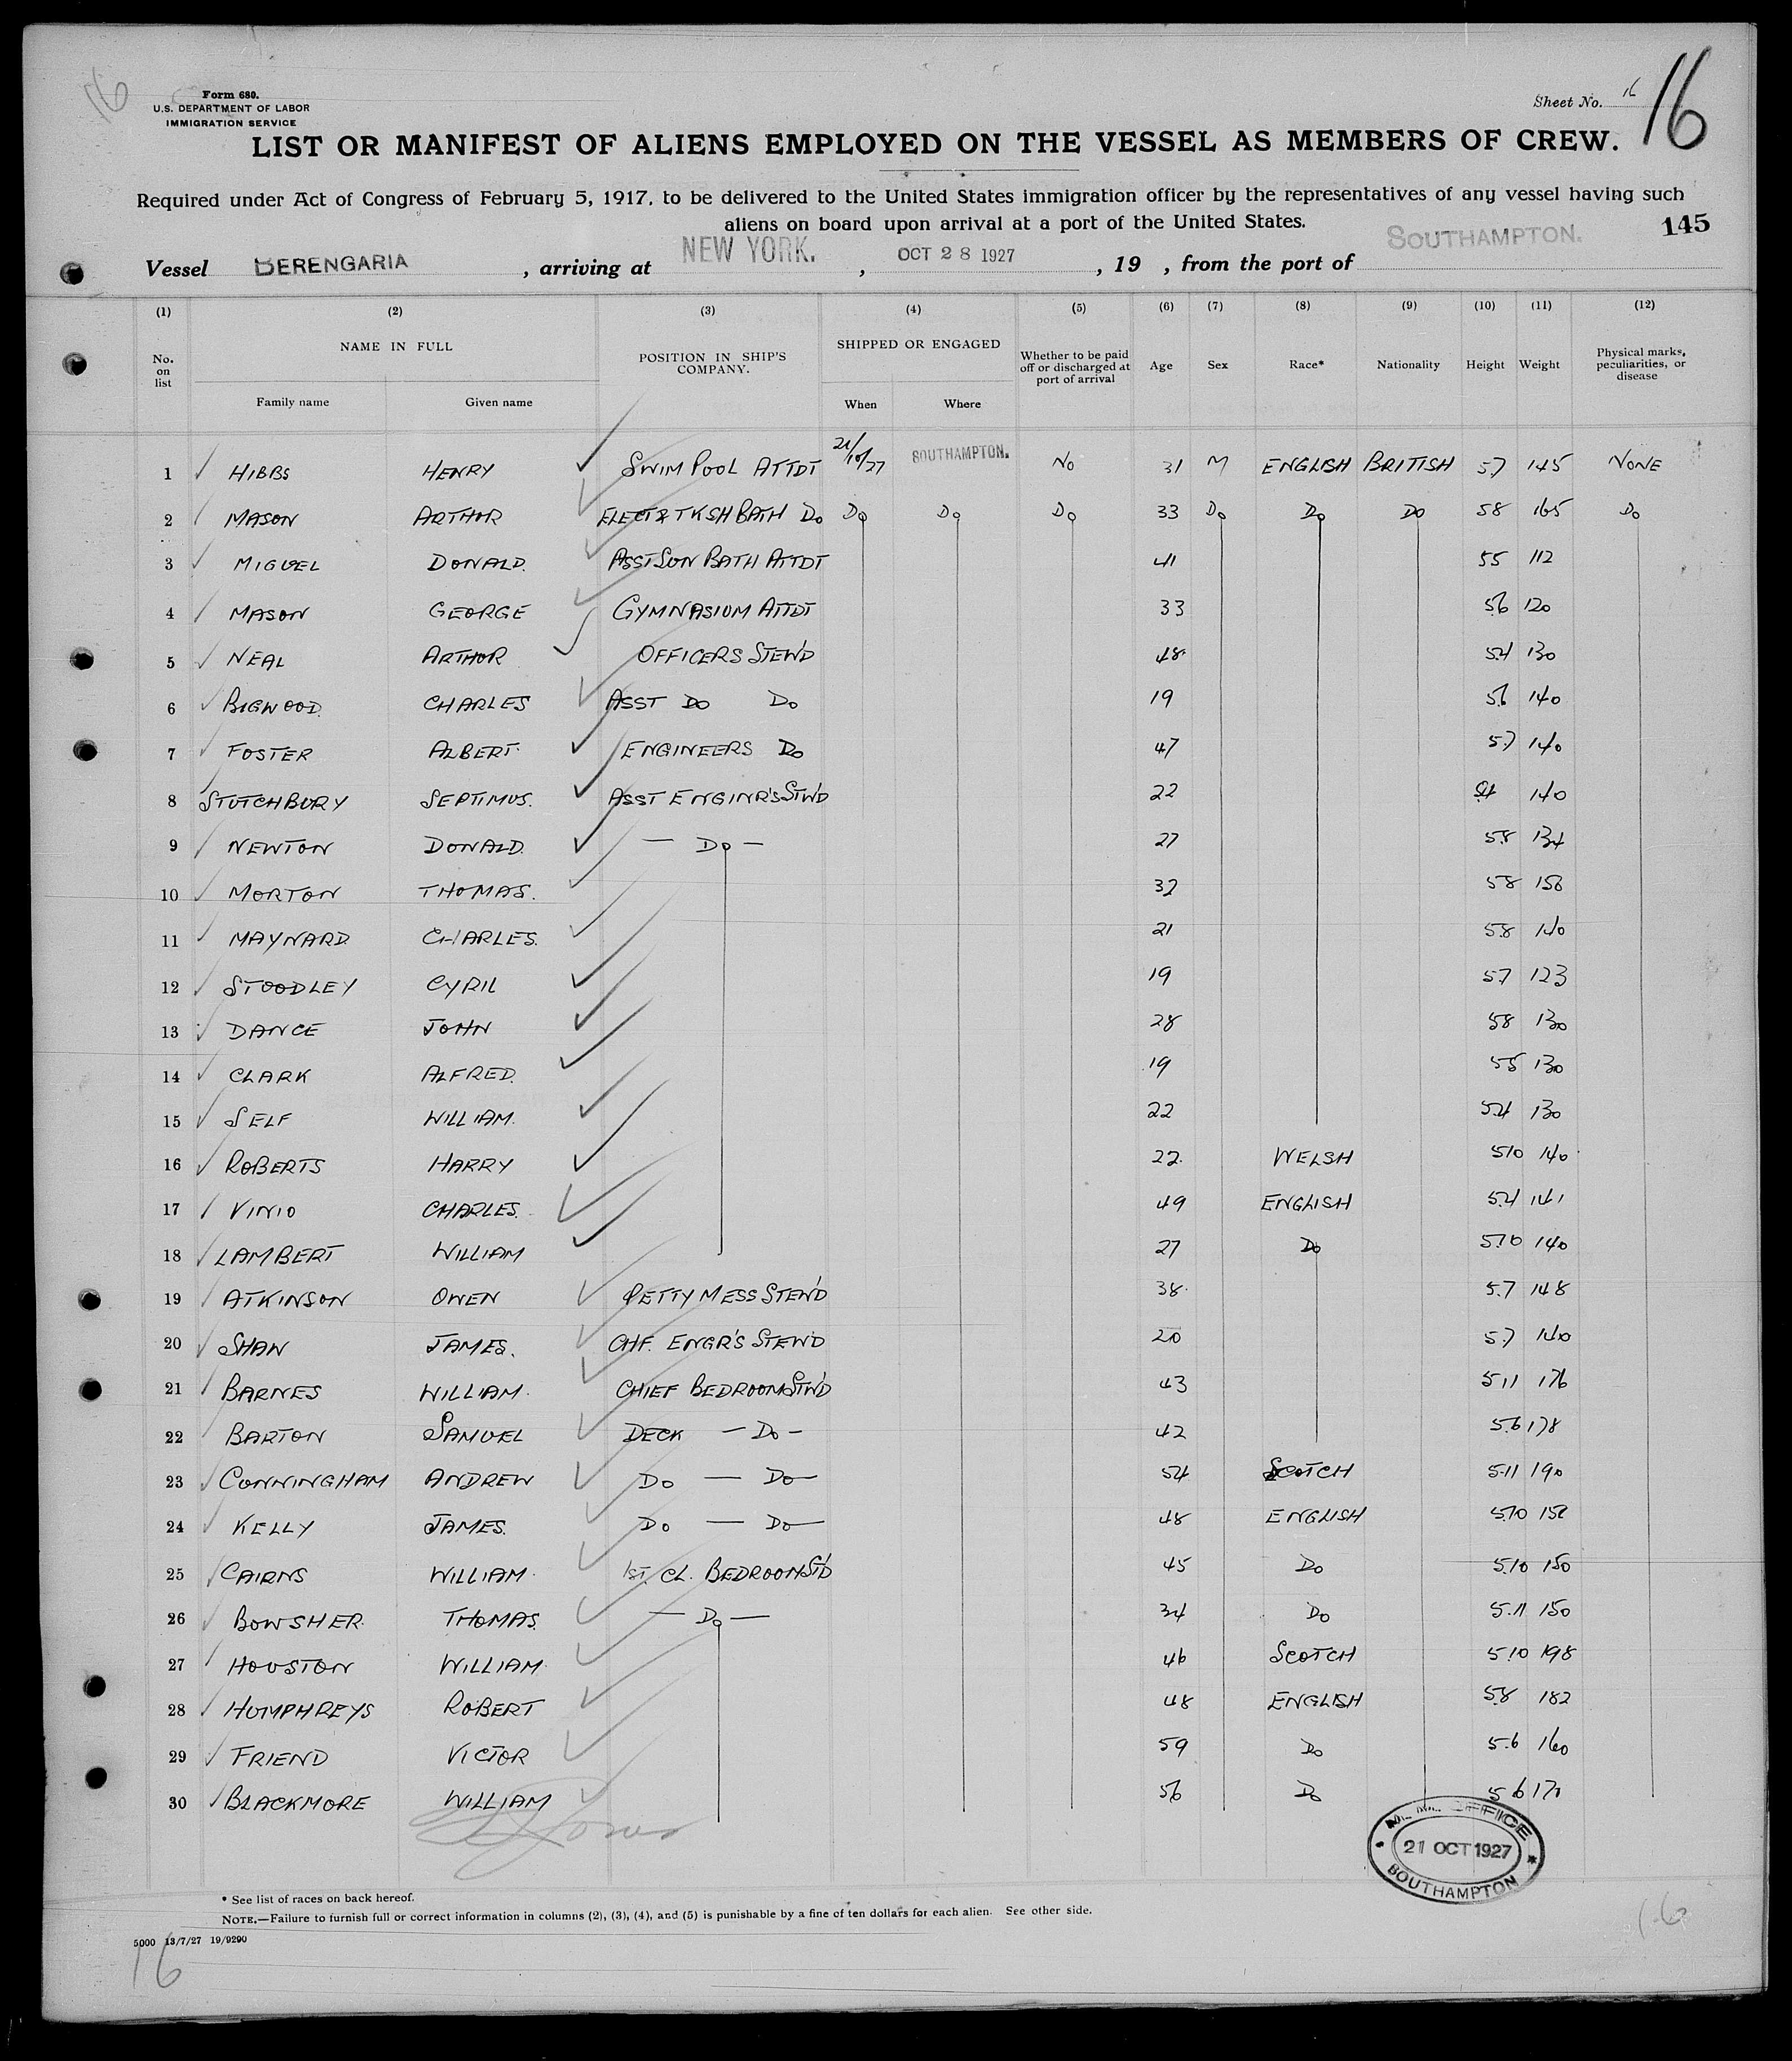 16
Form 680.
U.S. DEPARTMENT OF LABOR
IMMIGRATION SERVICE
Sheet No. 16
16
LIST OR MANIFEST OF ALIENS EMPLOYED ON THE VESSEL AS MEMBERS OF CREW.
Required under Act of Congress of February 5, 1917, to be delivered to the United States immigration officer by the representatives of any vessel having such
aliens on board upon arrival at a port of the United States.
145
Vessel BERENGARIA, arriving at NEW YORK., OCT 28 1927, 19 , from the port of SOUTHAMPTON.
(1) (2) (3) (4) (5) (6) (7) (8) (9) (10) (11) (12)
No. on list NAME IN FULL POSITION IN SHIP'S COMPANY. SHIPPED OR ENGAGED Whether to be paid off or discharged at port of arrival Age Sex Race* Nationality Height Weight Physical marks, peculiarities, or disease
Family name Given name When Where
1 HIBBS HENRY SWIM POOL ATTDT 21/10/27 SOUTHAMPTON. NO 31 M ENGLISH BRITISH 5.7 145 NONE
2 MASON ARTHUR ELECT & TKSH BATH DO DO DO DO 33 DO DO DO 58 165 DO
3 MIGUEL DONALD. ASST SUN BATH ATTDT 41 55 112
4 MASON GEORGE GYMNASIUM ATTDT 33 5.6 120
5 NEAL ARTHUR OFFICERS STEW'D 48 5.4 130
6 BIGWOOD. CHARLES ASST DO DO 19 5.6 140
7 FOSTER ALBERT. ENGINEERS DO 47 5.7 140
8 STUTCHBURY SEPTIMUS. ASST ENGINR'S STW'D 22 140
9 NEWTON DONALD. — DO — 27 5.8 134
10 MORTON THOMAS. 32 58 156
11 MAYNARD. CHARLES. 21 5.8 140
12 STOODLEY CYRIL 19 5.7 123
13 DANCE JOHN 28 58 130
14 CLARK ALFRED. 19 55 130
15 SELF WILLIAM. 22 5.4 130
16 ROBERTS HARRY 22. WELSH 510 140
17 VINIO CHARLES. 49 ENGLISH 5.4 141
18 LAMBERT WILLIAM 27 DO 5.10 140
19 ATKINSON OWEN PETTY MESS STEW'D 38. 5.7 148
20 SHAW JAMES. CHF. ENGR'S STEW'D 20 5.7 140
21 BARNES WILLIAM. CHIEF BEDROOM STW'D 43 5.11 176
22 BARTON SAMUEL DECK — DO — 42 5.6 178
23 CUNNINGHAM ANDREW DO — DO — 54 SCOTCH 5.11 190
24 KELLY JAMES. DO — DO — 48 ENGLISH 5.10
25 CAIRNS WILLIAM. 1ST. CL. BEDROOM ST'D 45 DO 5.10 150
26 BOWSHER. THOMAS. — DO — 34 DO 5.11 150
27 HOUSTON WILLIAM. 46 SCOTCH 5.10 198
28 HUMPHREYS ROBERT 48 ENGLISH 5.8 182
29 FRIEND VICTOR 59 DO 5.6 160
30 BLACKMORE WILLIAM 56 DO 5.6 170
OFFICE
21 OCT 1927
SOUTHAMPTON
* See list of races on back hereof.
NOTE.—Failure to furnish full or correct information in columns (2), (3), (4), and (5) is punishable by a fine of ten dollars for each alien. See other side.
5000 13/7/27 19/9290
16
16